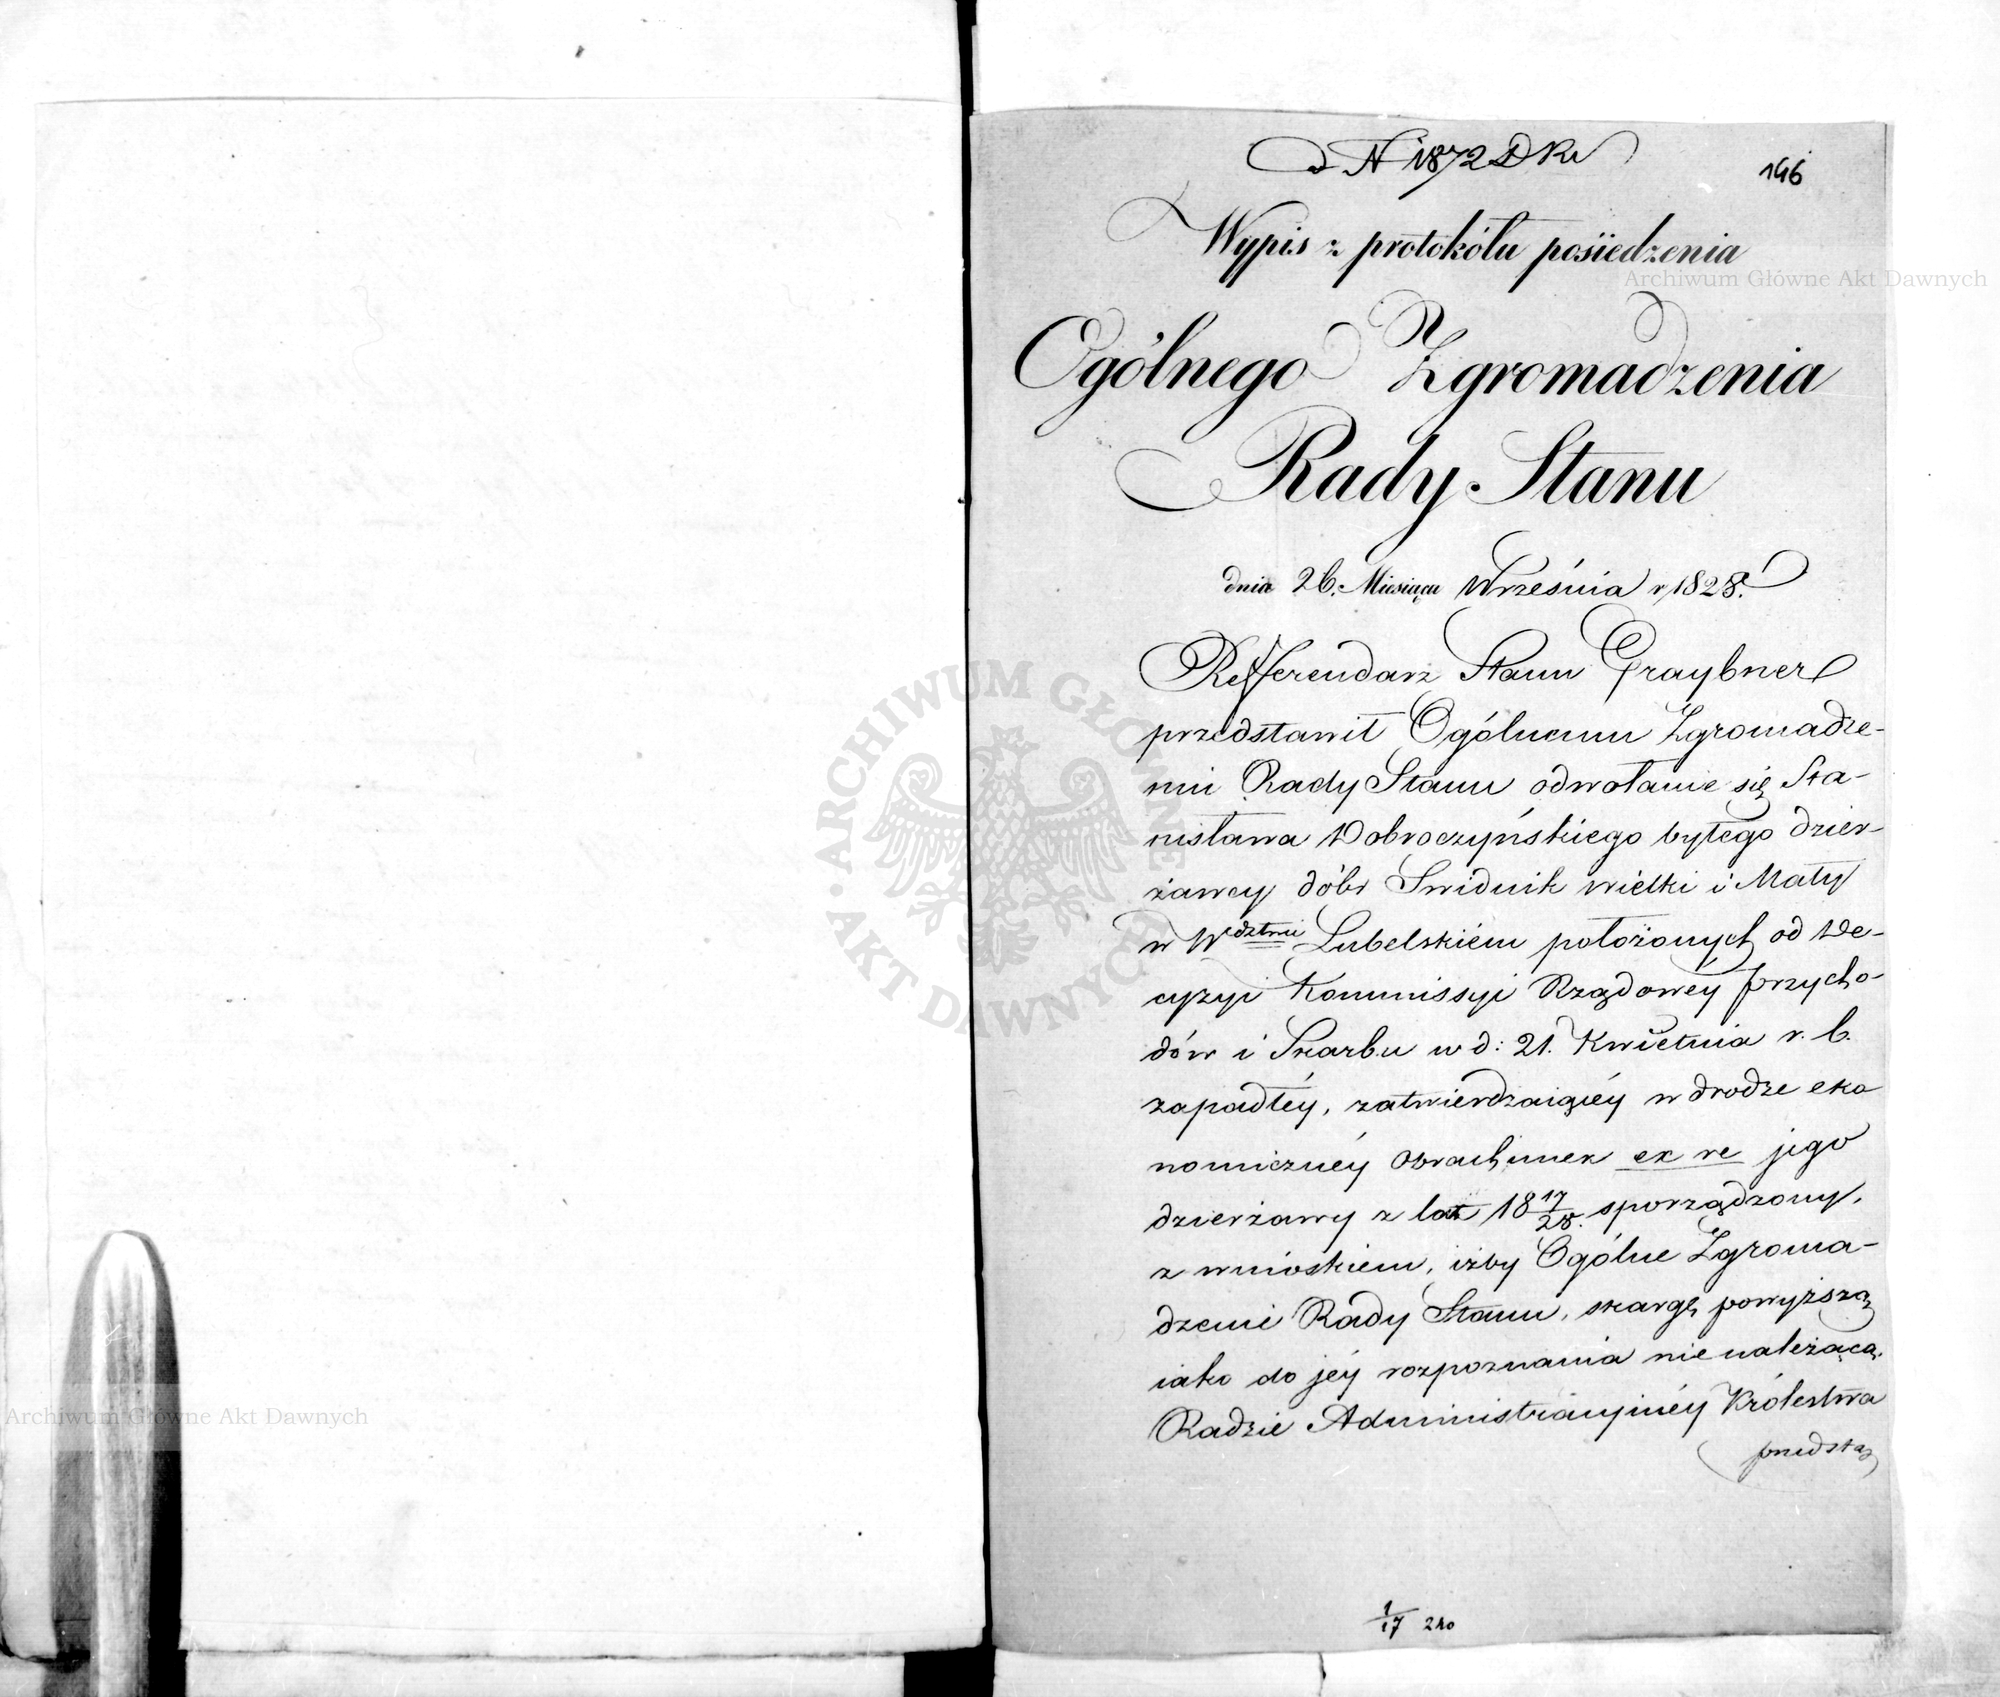 N 1872 D Kr
146
Wypis z protokółu posiedzenia
Ogólnego Zgromadzenia
Rady Stanu
dnia 26. Miesiąca Września r 1828.
Refferendarz Stanu Graybner
przedstawił Ogólnemu Zgromadze-
niu Rady Stanu odwołanie się Sta-
nisława Dobroczyńskiego byłego dzier-
żawcy dóbr Swidnik wielki i Mały
w Wdztwie Lubelskiém położonych od De-
cyzyi Kommissyi Rządowéy Przycho-
dów i Skarbu w d: 21. Kwietnia r. b.
zapadłéy, zatwierdzaiącéy w drodze eko
nomicznéy Obrachunek ex re jego
dzierżawy z lat 18 17/28. sporządzony,
z wnioskiem, iżby Ogólne Zgroma-
dzenie Rady Stanu, skargę powyższą
iako do jéy rozpoznania nie należącą,
Radzie Administracyinéy Królestwa
przedsta
1/17 240
Archiwum Główne Akt Dawnych
Archiwum Główne Akt Dawnych
ARCHIWUM GŁÓWNE AKT DAWNYCH